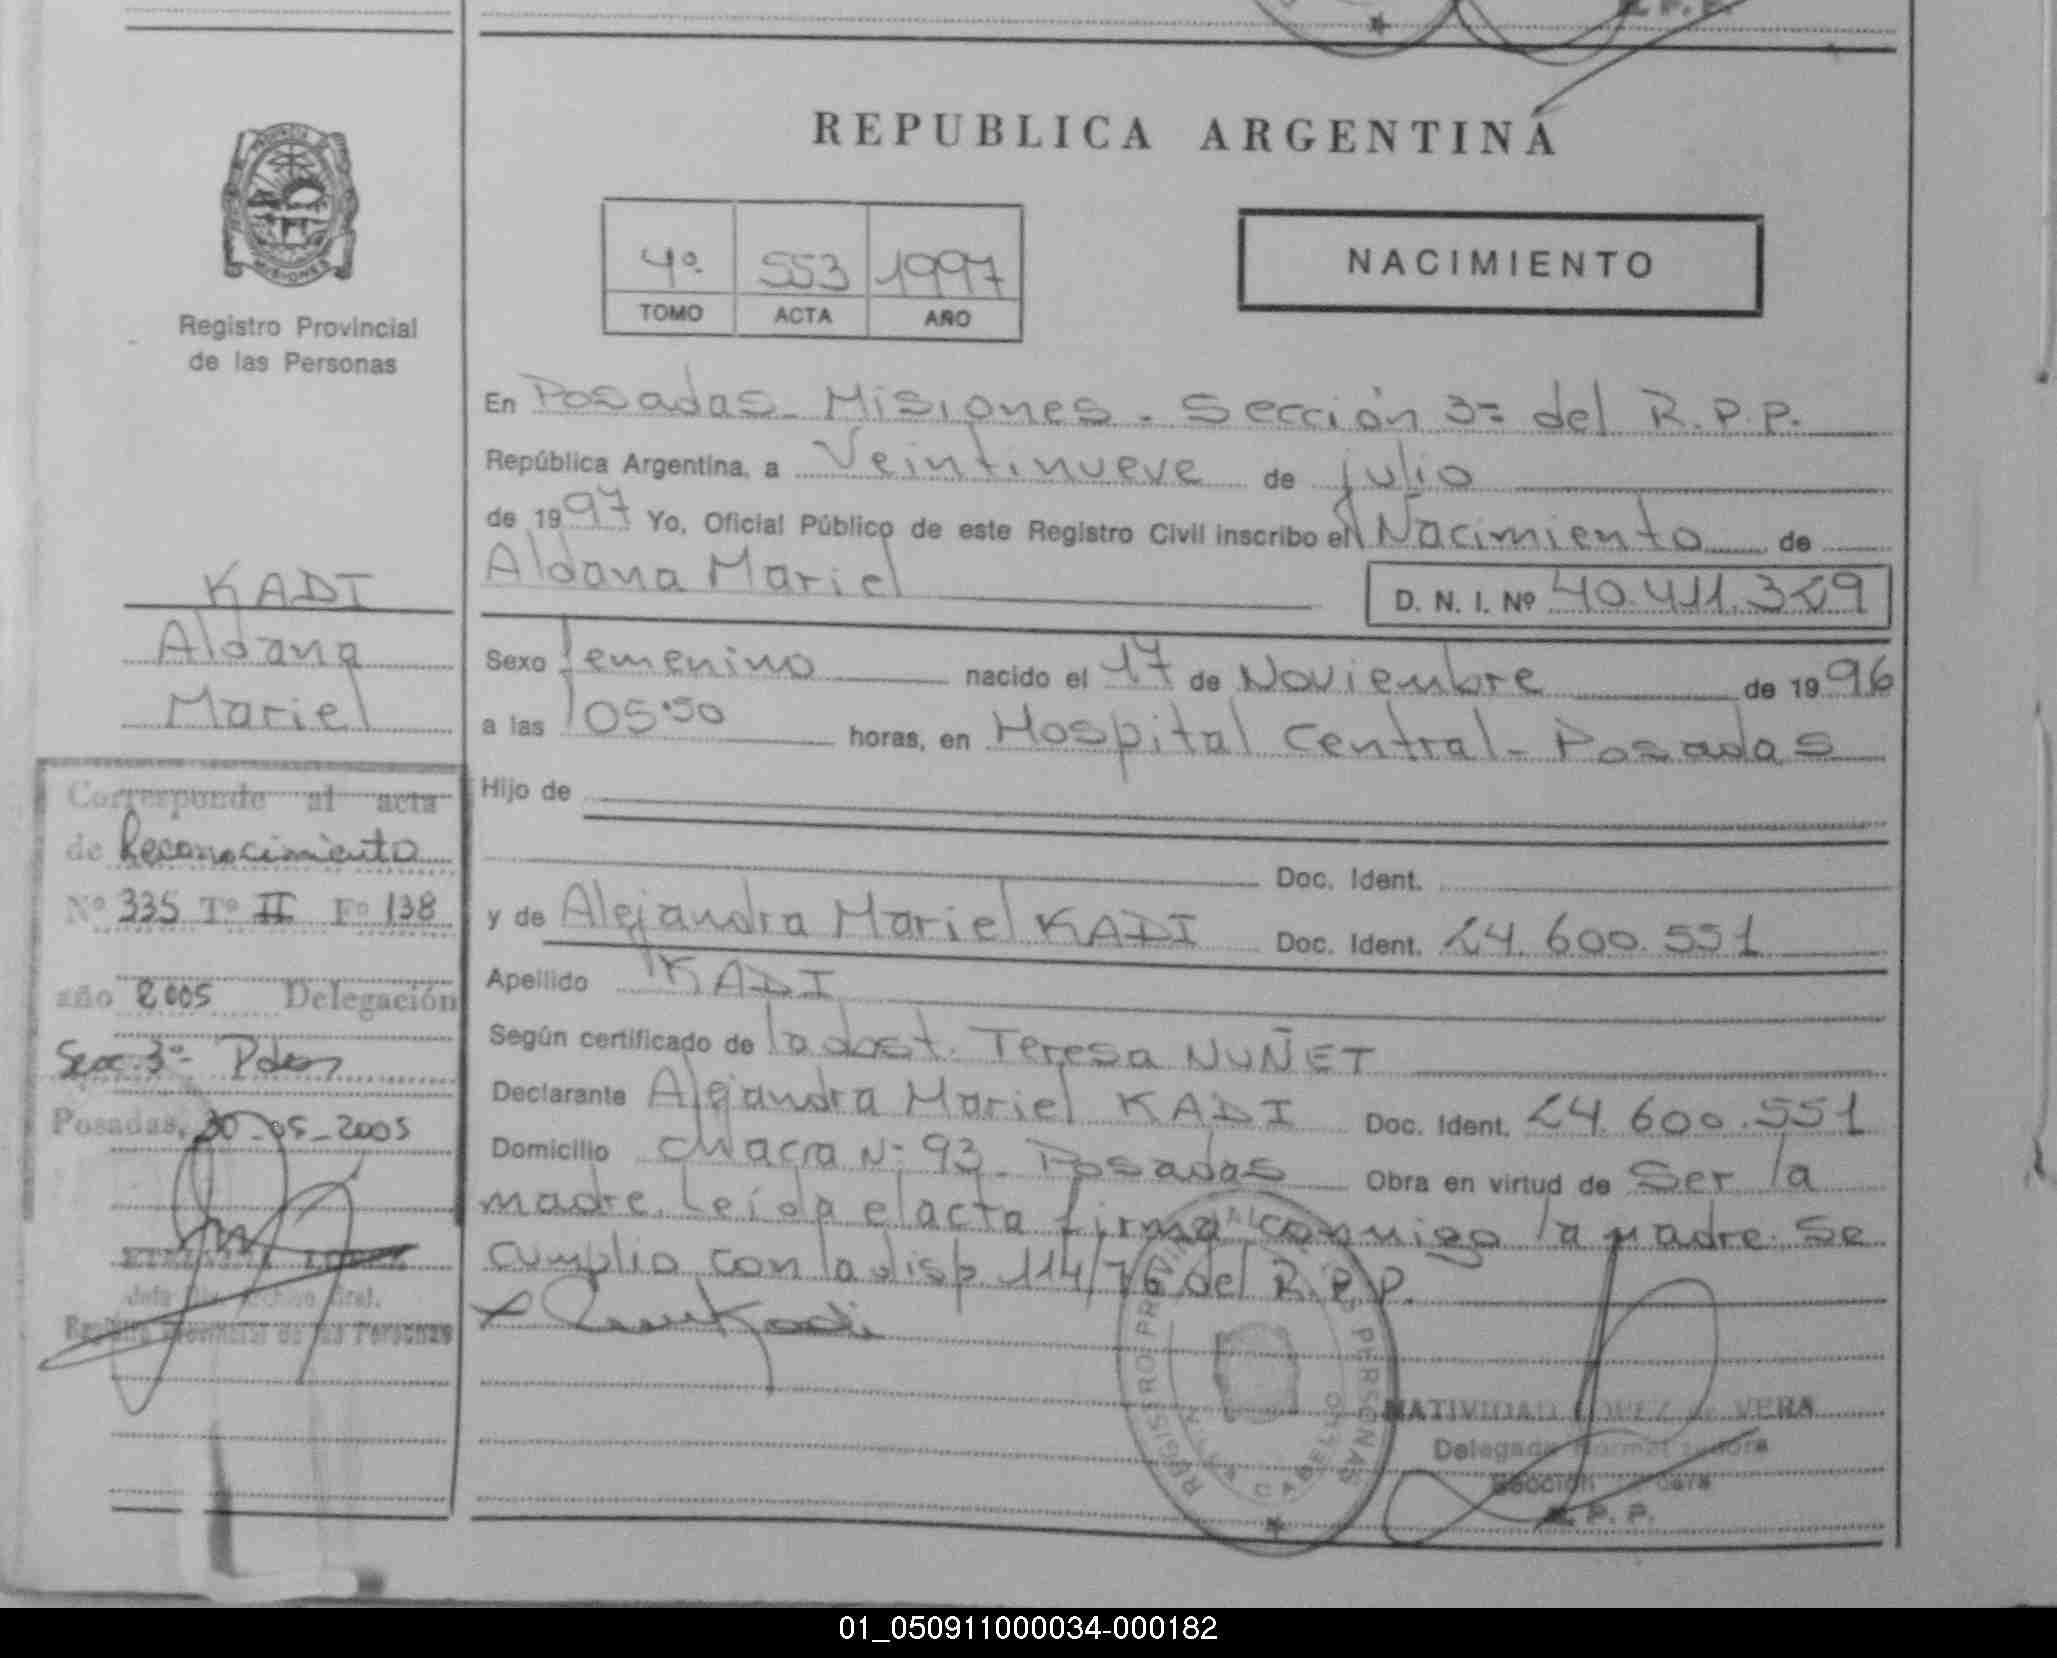 REPUBLICA ARGENTINA
4º 553 1997
TOMO ACTA AÑO
NACIMIENTO
Registro Provincial
de las Personas
En Posadas - Misiones - Sección 3ª del R.P.P.
República Argentina, a Veintinueve de julio
de 1997 Yo, Oficial Público de este Registro Civil inscribo el Nacimiento de
Aldana Mariel
D. N. I. Nº 40.411.329
Sexo femenino nacido el 17 de Noviembre de 1996
a las 05:50 horas, en Hospital Central - Posadas
Hijo de
Doc. Ident.
y de Alejandra Mariel KADI Doc. Ident. 24.600.551
Apellido KADI
Según certificado de la obst. Teresa NUÑET
Declarante Alejandra Mariel KADI Doc. Ident. 24.600.551
Domicilio chacra Nº 93 - Posadas Obra en virtud de Ser la
madre. Leída el acta firma conmigo la madre. Se
cumplio con la disp 114/76 del R.P.P.
Kadi
KADI
Aldana
Mariel
Corresponde al acta
de Reconocimiento
Nº 335 Tº II Fº 138
año 2005 Delegación
Secc. 3ª - Pdas
Posadas, 30-05-2005
Registro Provincial de las Personas
REGISTRO PROVINCIAL DE LAS PERSONAS
NATIVIDAD LOPEZ de VERA
Sección
R. P. P.
01_050911000034-000182